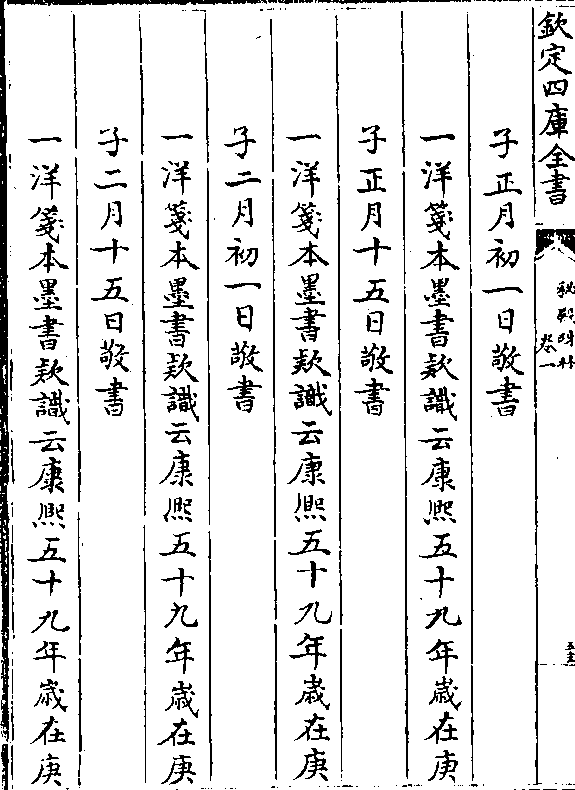 欽定四庫全書
秘殿珠林
卷一
子正月初一日敬書
一洋箋本墨書款識云康熙五十九年歲在庚
子正月十五日敬書
一洋箋本墨書款識云康熙五十九年歲在庚
子二月初一日敬書
一洋箋本墨書款識云康熙五十九年歲在庚
子二月十五日敬書
一洋箋本墨書款識云康熙五十九年歲在庚